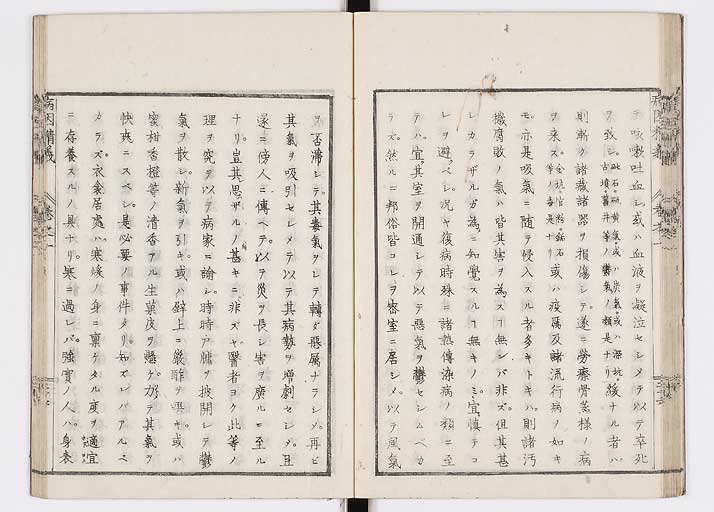 テ咳嗽吐血シ或ハ血液ヲ凝泣セシメテ以テ卒死
ヲ致シ砒石硫黄氣或ハ炭氣或ハ深坑
古墳舊井等ノ鬱氣ノ類是ナリ緩ナル者ハ
則漸ク諸藏諸器ヲ損傷シテ遂ニ勞瘵骨蒸様ノ病
ヲ来ス金坑官粉鉛石
等ノ毒是ナリ或ハ疫厲及諸流行病ノ如キ
モ亦是吸氣ニ随テ侵入スル者多キトキハ則諸汚
機腐敗ノ氣ハ皆其害ヲ為ス丁無ンバ非ズ但其甚
シカラザルガ為ニ知覺スル丁無キノミ宜慎テコ
レヲ避ベシ况ヤ復病時殊ニ諸熱傳染病ノ類ニ至
テハ宜其室ヲ開通シテ以テ惡氣ヲ鬱セシムベカ
ラズ然ルニ邦俗皆コレヲ密室ニ居シメ以テ風氣
ヲ否滞シテ其毒氣ヲシテ轉ダ惡厲ナラシメ再ビ
其氣ヲ吸引セシメテ以テ其病勢ヲ増劇セシメ且
遂ニ傍人ニ傳ヘテ以テ災ヲ長シ害ヲ廣ルニ至ル
ナリ豈其思ザルノ甚キニ非ズヤ醫者ヨク此等ノ
理ヲ究テ以テ病家ニ諭シ時時戸牖ヲ披開シテ鬱
氣ヲ散シ新氣ヲ引キ或ハ壁上ニ嚴酢ヲ噀キ或ハ
蜜柑香橙等ノ清香アル生菓皮ヲ懸ケ乃テ其氣ヲ
快爽ニスベシ是必要ノ事件タリ知ズンバアルベ
カラズ衣衾居處ハ寒煖ノ身ニ稟ケタル度ヲ適宜
ニ存養スルノ具ナリ寒ニ過レバ強實ノ人ハ身表
病因精義
巻之一